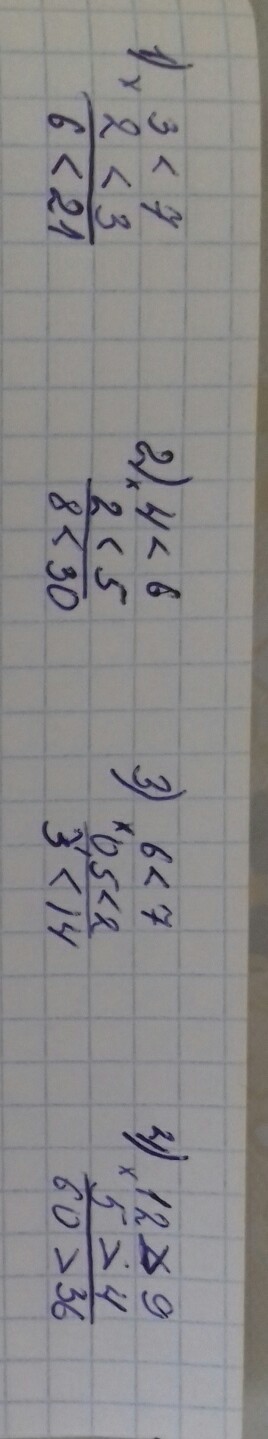 1) 3 < 7
× 2 < 3
6 < 21
2) 4 < 6
× 2 < 5
8 < 30
3) 6 < 7
× 0,5 < 2
3 < 14
4) 12 > 9
× 5 > 4
60 > 36